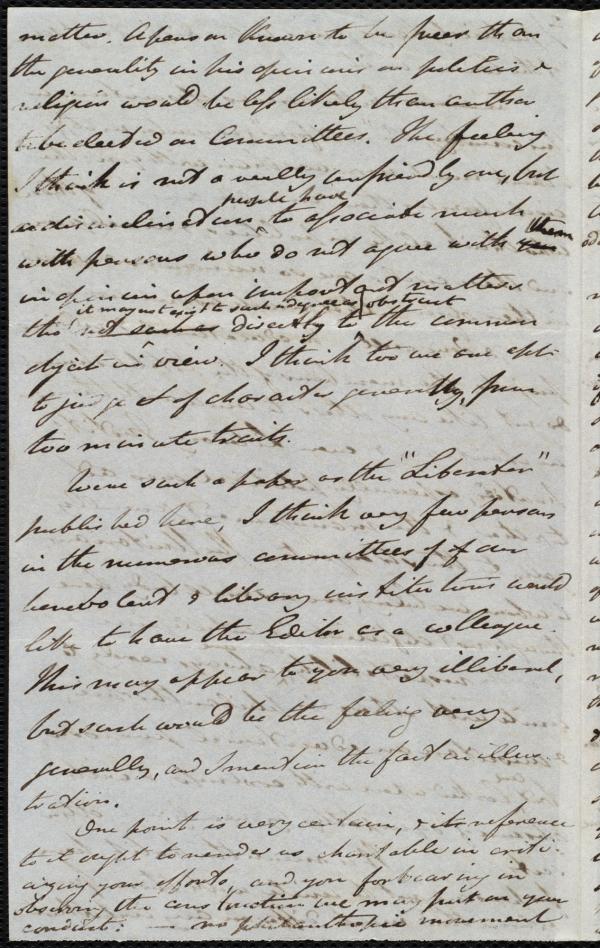 matter. A person known to be freer than
the generality in his opinions on politics &
religion would be less likely than another
to be elected on Committees. The feeling
I think is not a really unfriendly one, but
a disinclination people have to associate much
with persons who do not agree with them
in opinion upon important matters
tho' it may not exist to such a degree as obstruct directly to the common
object in view. I think too we are apt
to judge of character generally, from
too minute traits.
Were such a paper as the "Liberator"
published here, I think very few persons
in the numerous committees of our
benevolent & literary institutions would
like to have the Editor as a colleague.
This may appear to you very illiberal,
but such would be the feeling very
generally, and I mention the fact as illus-
tration.
One point is very certain, & its reference
to it ought to render us charitable in criti-
cising your efforts, and you forbearing in
observing the construction we may put on your
conduct: — no philanthropic movement